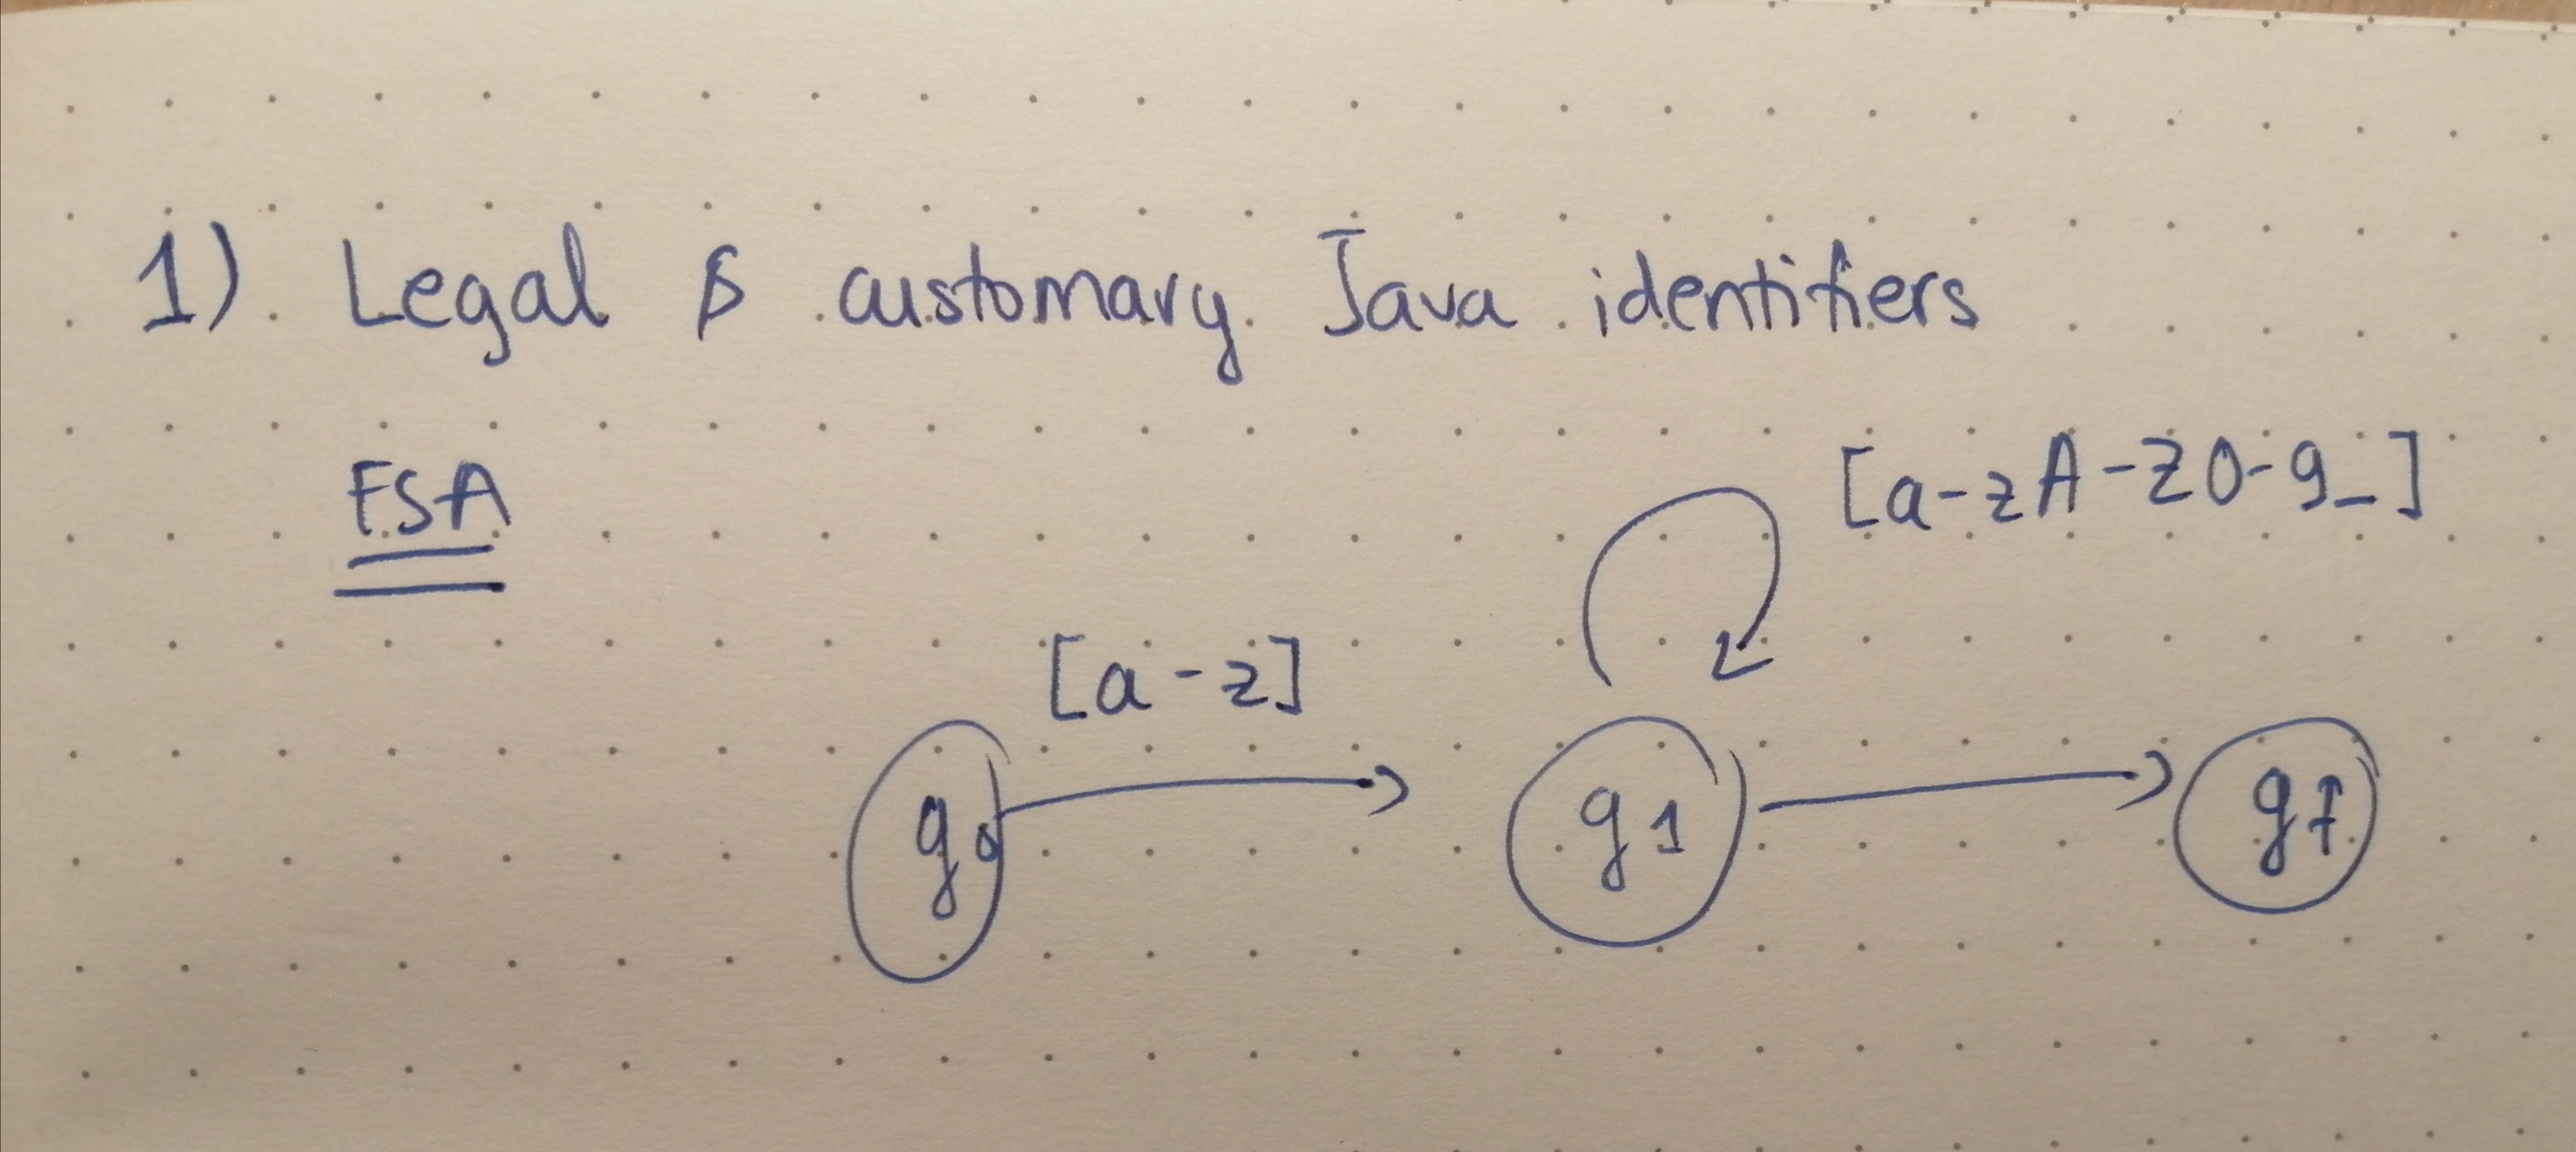 1) Legal & customary Java identifiers
FSA
[a-zA-Z0-9_]
[a-z]
q0 q1 qf